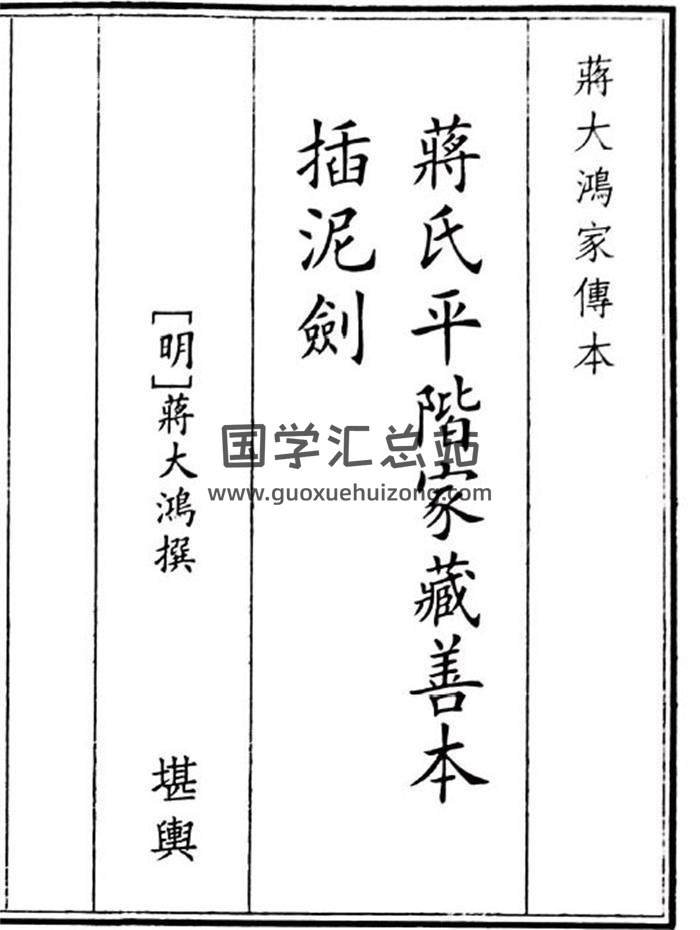 蔣大鴻家傳本
蔣氏平階家藏善本
插泥劍
[明]蔣大鴻撰
堪輿
国学汇总站
www.guoxuehuizong.com